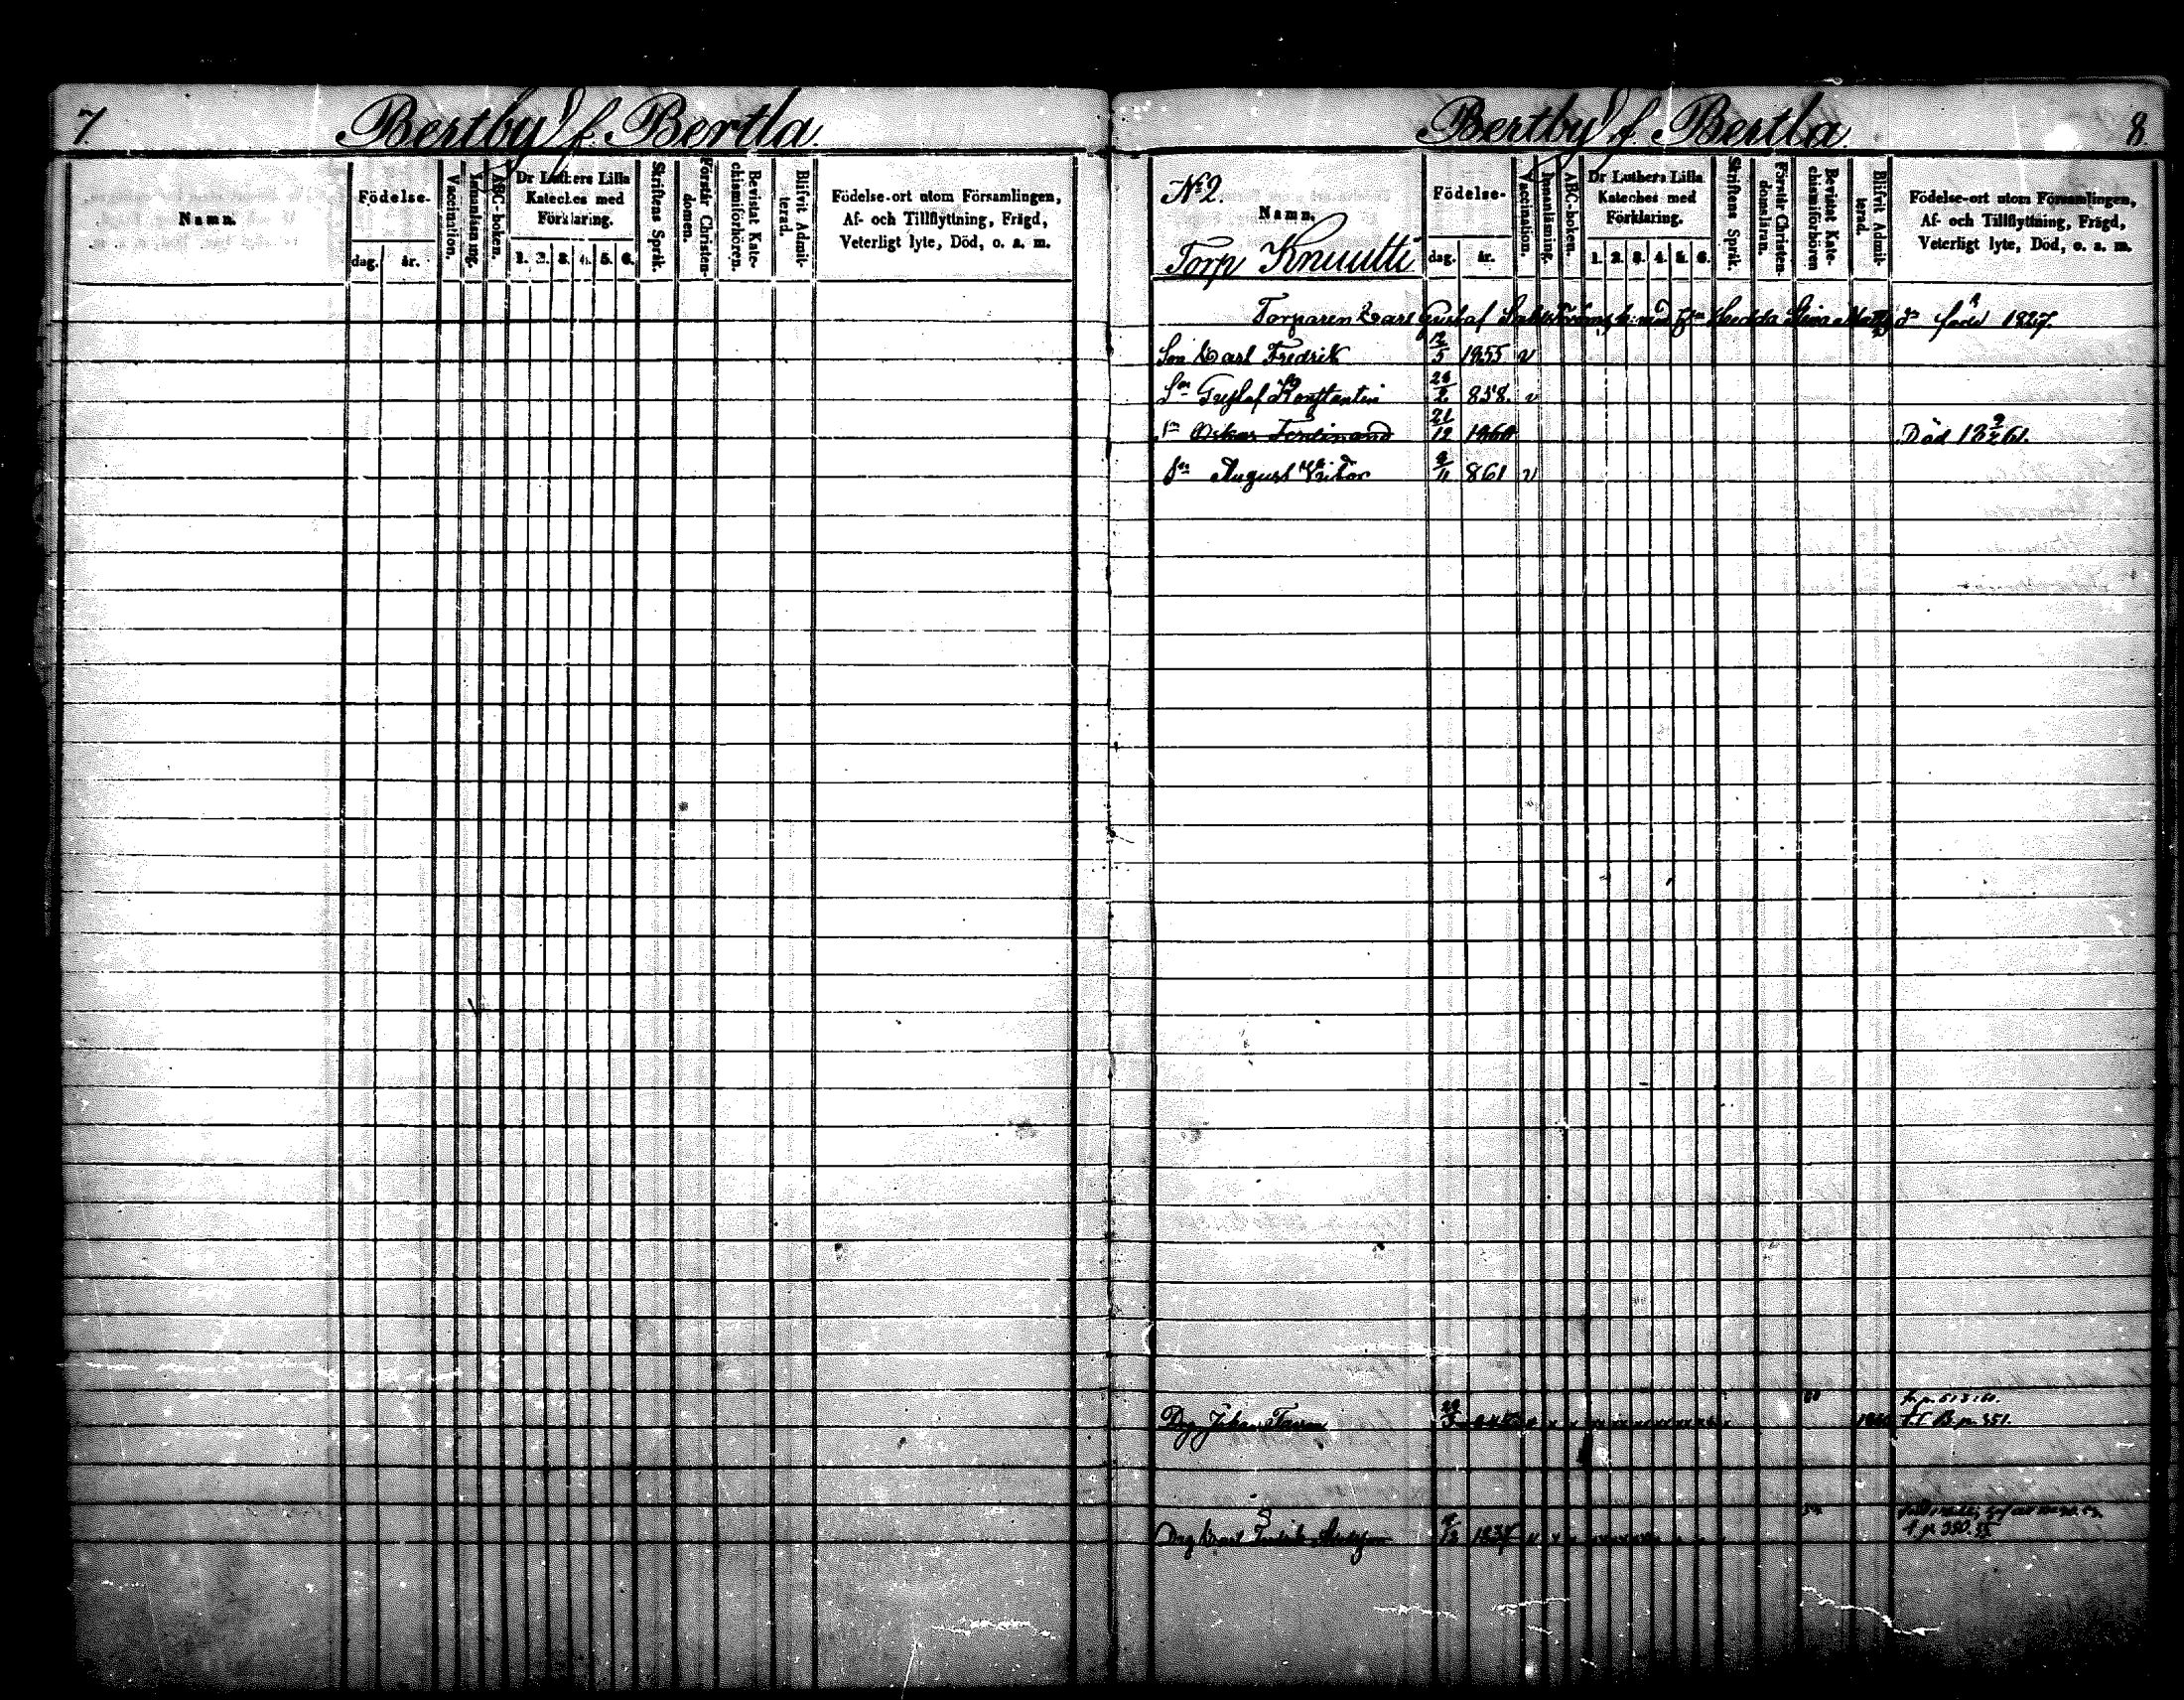 7.
Bertby f. Bertla.
Namn.
Födelse-
dag.
år.
Vaccination.
Innanläsning.
ABC-boken.
Dr Luthers Lilla
Kateches med
Förklaring.
1. 2. 3. 4. 5. 6.
Skriftens Språk.
Förstår Christen-
domen.
Bevistat Kate-
chismiförhören.
Blifvit Admit-
terad.
Födelse-ort utom Församlingen,
Af- och Tillflyttning, Frägd,
Veterligt lyte, Död, o. s. m.
Bertby f. Bertla.
8.
No 2.
Namn.
Torp Knuutti
Födelse-
dag.
år.
Vaccination.
Innanläsning.
ABC-boken.
Dr Luthers Lilla
Kateches med
Förklaring.
1. 2. 3. 4. 5. 6.
Skriftens Språk.
Förstår Christen-
domsläran.
Bevistat Kate-
chismiförhören
Blifvit Admit-
terad.
Födelse-ort utom Församlingen,
Af- och Tillflyttning, Frägd,
Veterligt lyte, Död, o. s. m.
Torparen Carl Gustaf Hedda Stina född 1827.
Son Carl Fredrik 12/5 1855 v
Sn Gustaf Konstantin 24/2 858. v
Sn Oskar Ferdinand 21/12 1860 Död 18 9/2 61.
Sn August Viktor 9/11 861 v
Drg Johan
B. p. 351.
Drg Carl Fredrik 1837
p. 350.